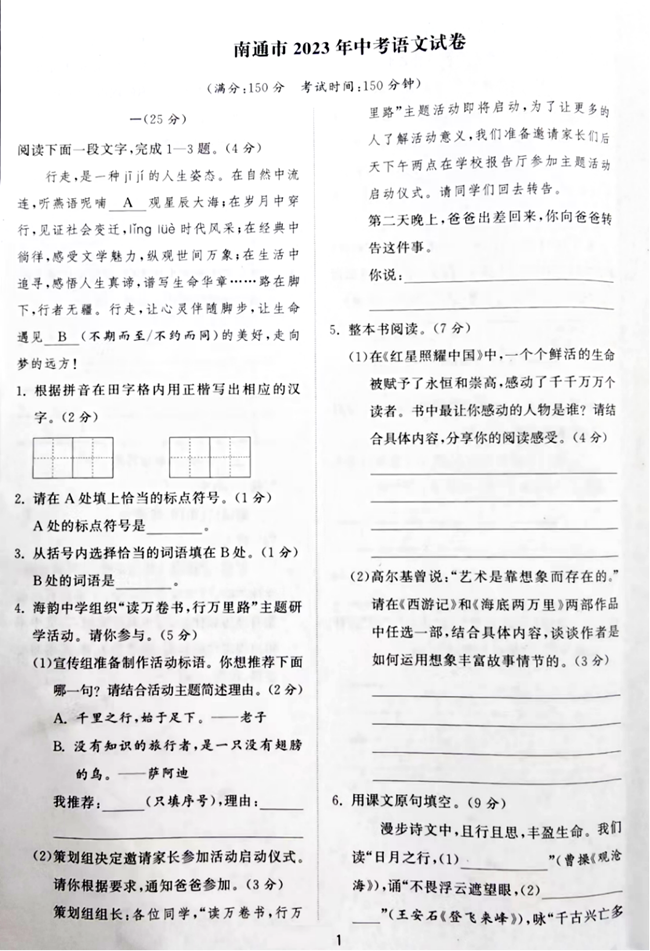 南通市 2023 年中考语文试卷
(满分:150分 考试时间:150分钟)
一(25分)
阅读下面一段文字,完成1—3题。(4分)
行走,是一种 jī jí 的人生姿态。在自然中流
连,听燕语呢喃 A 观星辰大海;在岁月中穿
行,见证社会变迁,lǐng lüè 时代风采;在经典中
徜徉,感受文学魅力,纵观世间万象;在生活中
追寻,感悟人生真谛,谱写生命华章……路在脚
下,行者无疆。行走,让心灵伴随脚步,让生命
遇见 B (不期而至/不约而同)的美好,走向
梦的远方!
1. 根据拼音在田字格内用正楷写出相应的汉
字。(2分)
2. 请在A处填上恰当的标点符号。(1分)
A处的标点符号是______。
3. 从括号内选择恰当的词语填在B处。(1分)
B处的词语是______。
4. 海韵中学组织“读万卷书,行万里路”主题研
学活动。请你参与。(5分)
(1)宣传组准备制作活动标语。你想推荐下面
哪一句?请结合活动主题简述理由。(2分)
A. 千里之行,始于足下。——老子
B. 没有知识的旅行者,是一只没有翅膀
的鸟。——萨阿迪
我推荐:______(只填序号),理由:______
(2)策划组决定邀请家长参加活动启动仪式。
请你根据要求,通知爸爸参加。(3分)
策划组组长:各位同学,“读万卷书,行万
里路”主题活动即将启动,为了让更多的
人了解活动意义,我们准备邀请家长们后
天下午两点在学校报告厅参加主题活动
启动仪式。请同学们回去转告。
第二天晚上,爸爸出差回来,你向爸爸转
告这件事。
你说:______
5. 整本书阅读。(7分)
(1)在《红星照耀中国》中,一个个鲜活的生命
被赋予了永恒和崇高,感动了千千万万个
读者。书中最让你感动的人物是谁?请结
合具体内容,分享你的阅读感受。(4分)
(2)高尔基曾说:“艺术是靠想象而存在的。”
请在《西游记》和《海底两万里》两部作品
中任选一部,结合具体内容,谈谈作者是
如何运用想象丰富故事情节的。(3分)
6. 用课文原句填空。(9分)
漫步诗文中,且行且思,丰盈生命。我们
读“日月之行,(1)______”(曹操《观沧
海》),诵“不畏浮云遮望眼,(2)______
______”(王安石《登飞来峰》),咏“千古兴亡多
1